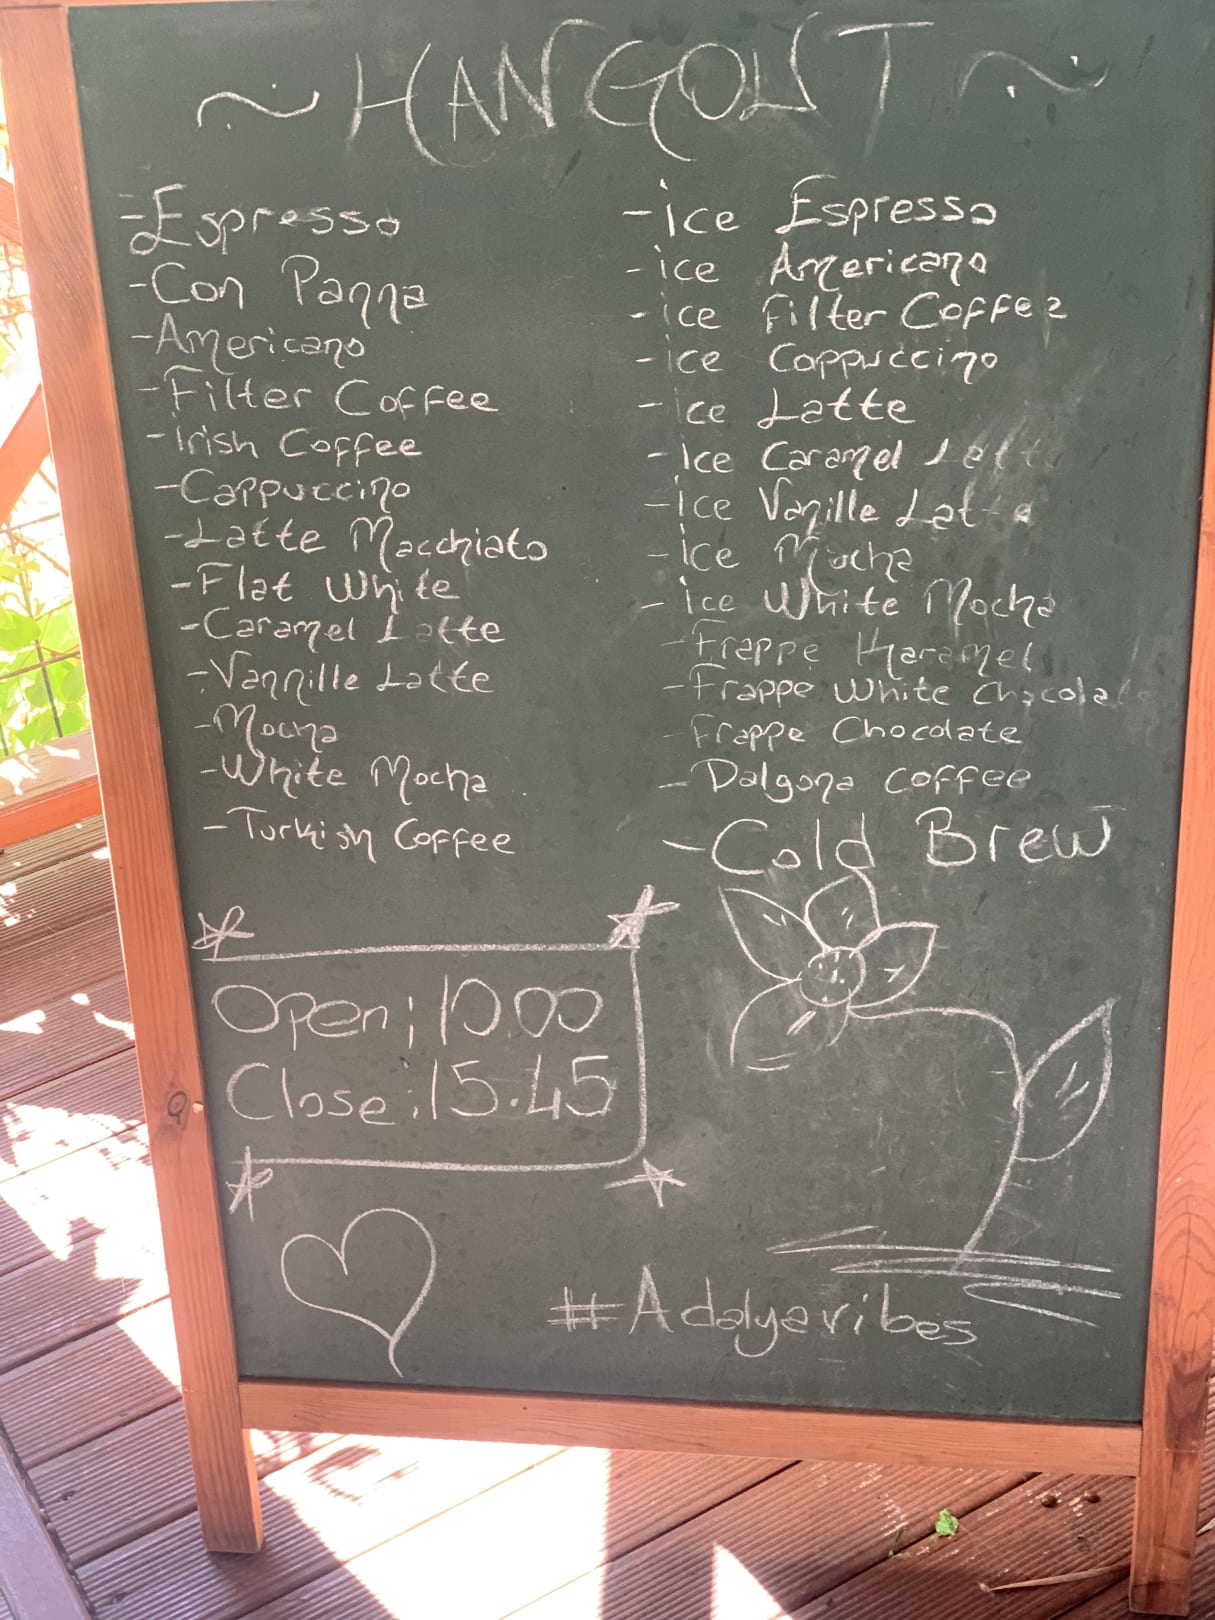 ~ HANGOUT ~
- Espresso
- Con Panna
- Americano
- Filter Coffee
- Irish Coffee
- Cappuccino
- Latte Macchiato
- Flat White
- Caramel Latte
- Vannille Latte
- Mocha
- White Mocha
- Turkish Coffee
- ice Espresso
- ice Americano
- ice Filter Coffee
- ice Cappuccino
- ice Latte
- Ice Caramel Latte
- Ice Vanille Latte
- Ice Mocha
- ice White Mocha
- Frappe Karamel
- Frappe White Chocolate
- Frappe Chocolate
- Dalgona coffee
- Cold Brew
Open; 10.00
Close; 15.45
#Adalyavibes